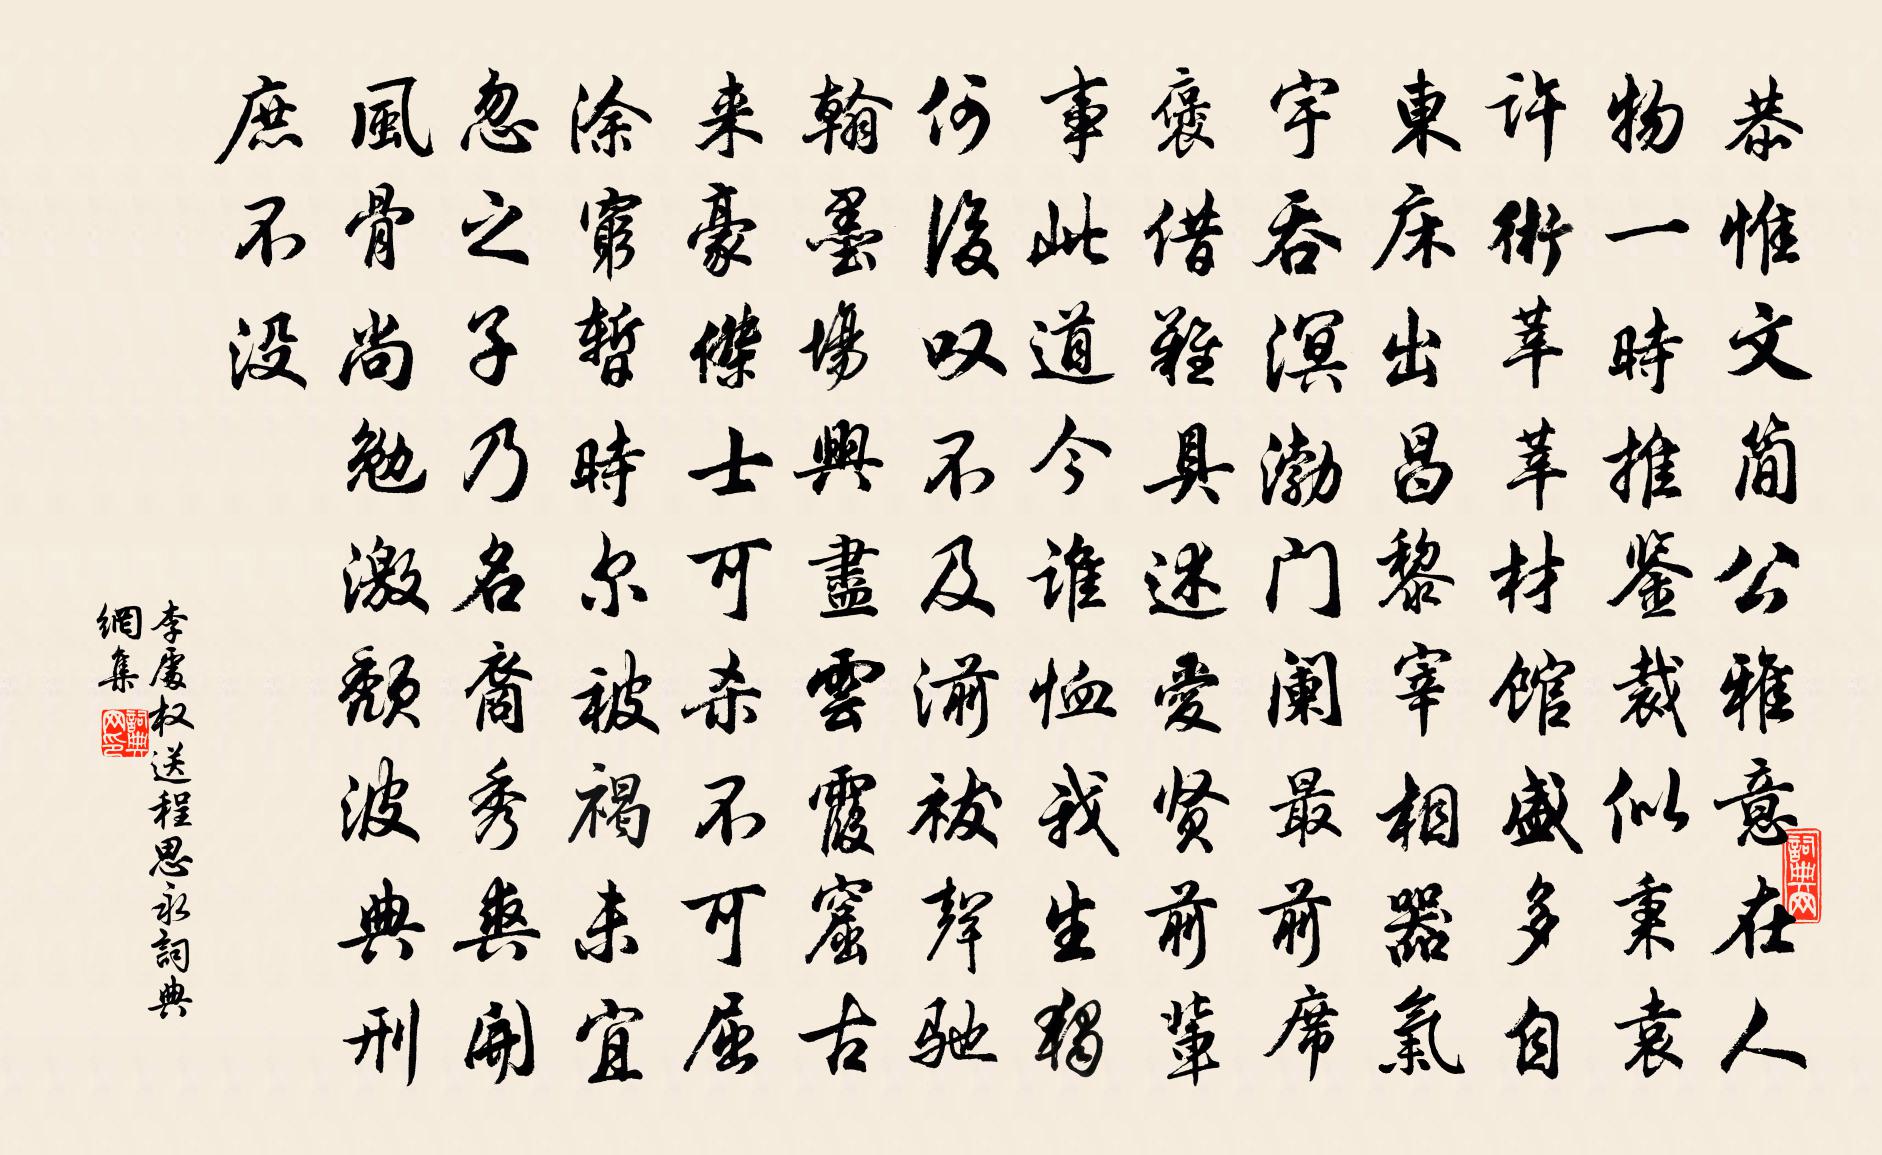 恭惟文簡公雅意在人
物一時推鉴裁似秉袁
許術莘莘材馆盛多自
東床出昌黎宰相器氣
宇吞溟渤门阑最前席
褒借難具述爱贤前輩
事此道今谁恤我生獨
何後叹不及湔祓聲驰
翰墨場興盡雲霞窟古
来豪傑士可杀不可屈
涂窮暫時尔被褐未宜
忽之子乃名裔秀爽開
風骨尚勉激颓波典刑
庶不没
李處权送程思永詞典
網集
詞典网
詞典网印